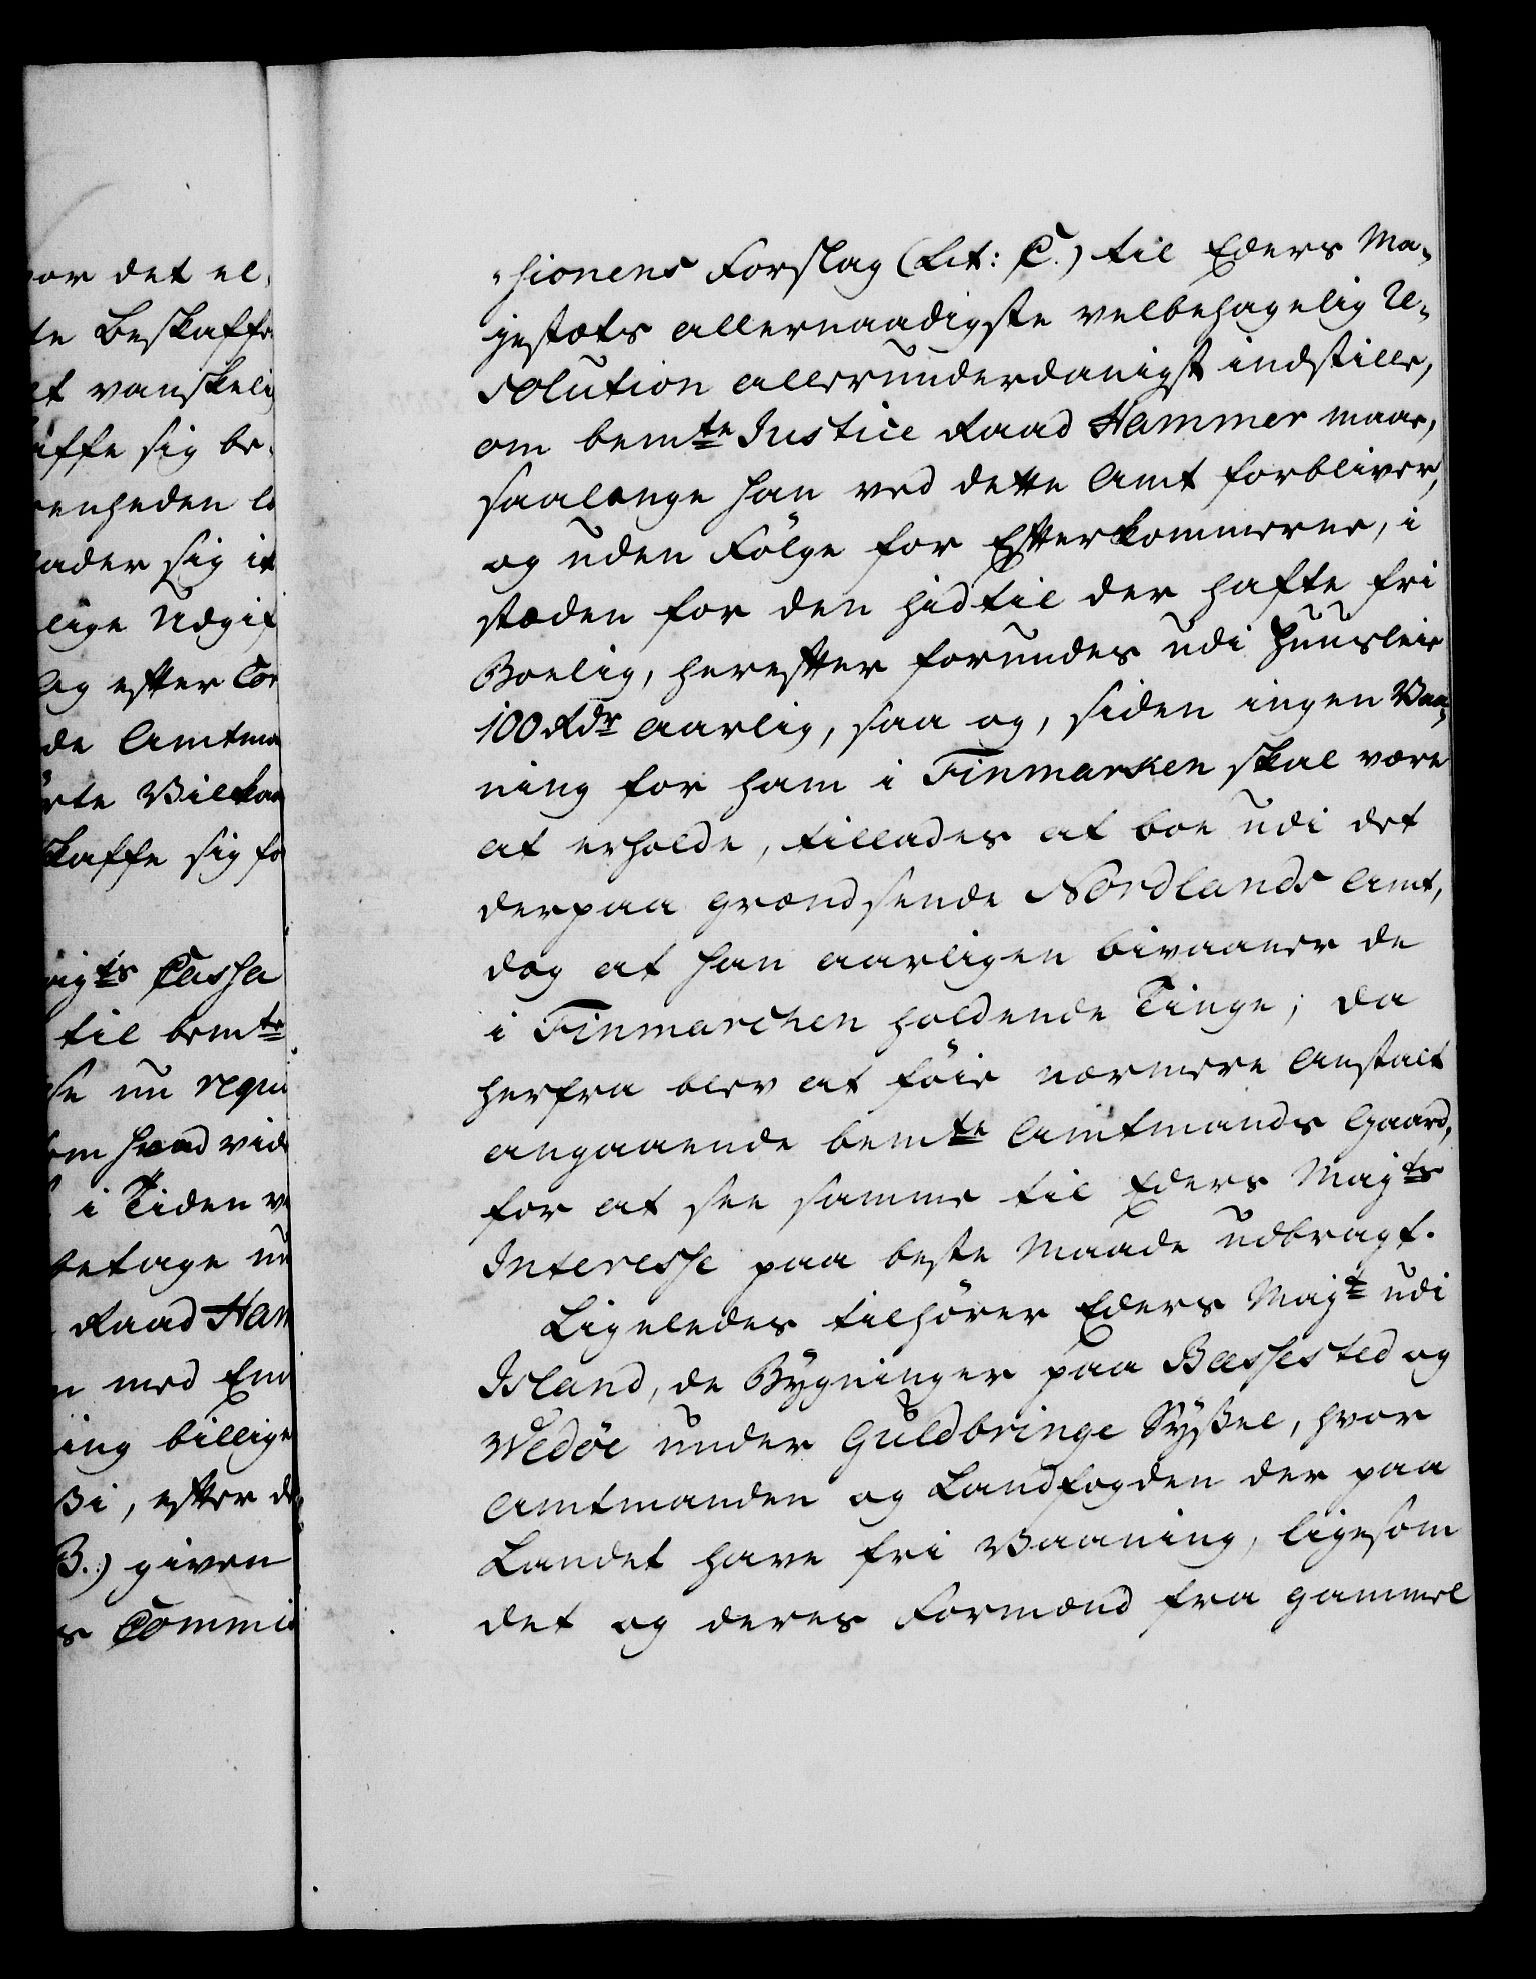 or det el-
te Beskaffe
et vanskelig
affe sig be-
enheden
ader sig ik
lige Udgif
lig efter
de Amtma
rte Vilkaa
skaffe sig fo
igts Cassa
til bemte
se nu
om hvad vid
i Tiden
betage
Raad Ham
n med Em
ing billige
Bi, efter d
B.) given
s Commis
-sionens Forslag (Lit: C.) til Eders Ma-
jestæts allernaadigste velbehagelig Re-
solution allerunderdanigst indstille,
om bemte Justice Raad Hammer maae,
saalænge han ved dette Amt forbliver,
og uden Følge for Efterkommerne, i
stæden for den hidtil der hafte fri
Boelig, herefter forundes udi Huusleie
100 Rdr aarlig, saa og, siden ingen Vaa-
ning for ham i Finmarken skal være
at erholde, tillades at boe udi det
derpaa grændsende Nordlands Amt,
dog at han aarligen bivaaner de
i Finmarchen holdende Tinge; da
herfra blev at føie nærmere Anstalt
angaaende bemte Amtmands Gaard,
for at see samme til Eders Majts
Interesse paa beste Maade udbragt.
Ligeledes tilhører Eders Majt udi
Island, de Bygninger paa Bessested og
Wedøe under Guldbringe Syssel, hvor
Amtmanden og Landfogden der paa
Landet have fri Vaaning, ligesom
det og deres Formænd fra gammel